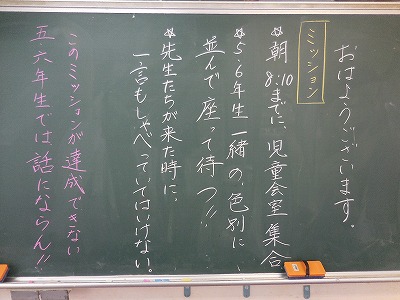 おはようございます。
ミッション
☆朝8:10までに、児童会室集合
☆5.6年生一緒の、色別に
並んで座って待つ!!
☆先生たちが来た時に、
一言もしゃべっていてはいけない。
このミッションが達成できない
五・六年生では、話にならん!!